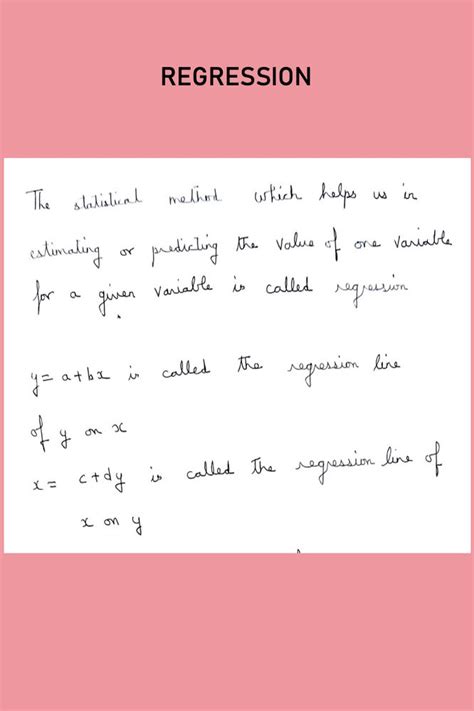 REGRESSION
The statistical method which helps us in
estimating or predicting the value of one variable
for a given variable is called regression
y = a + bx is called the regression line
of y on x
x = c + dy is called the regression line of
x on y